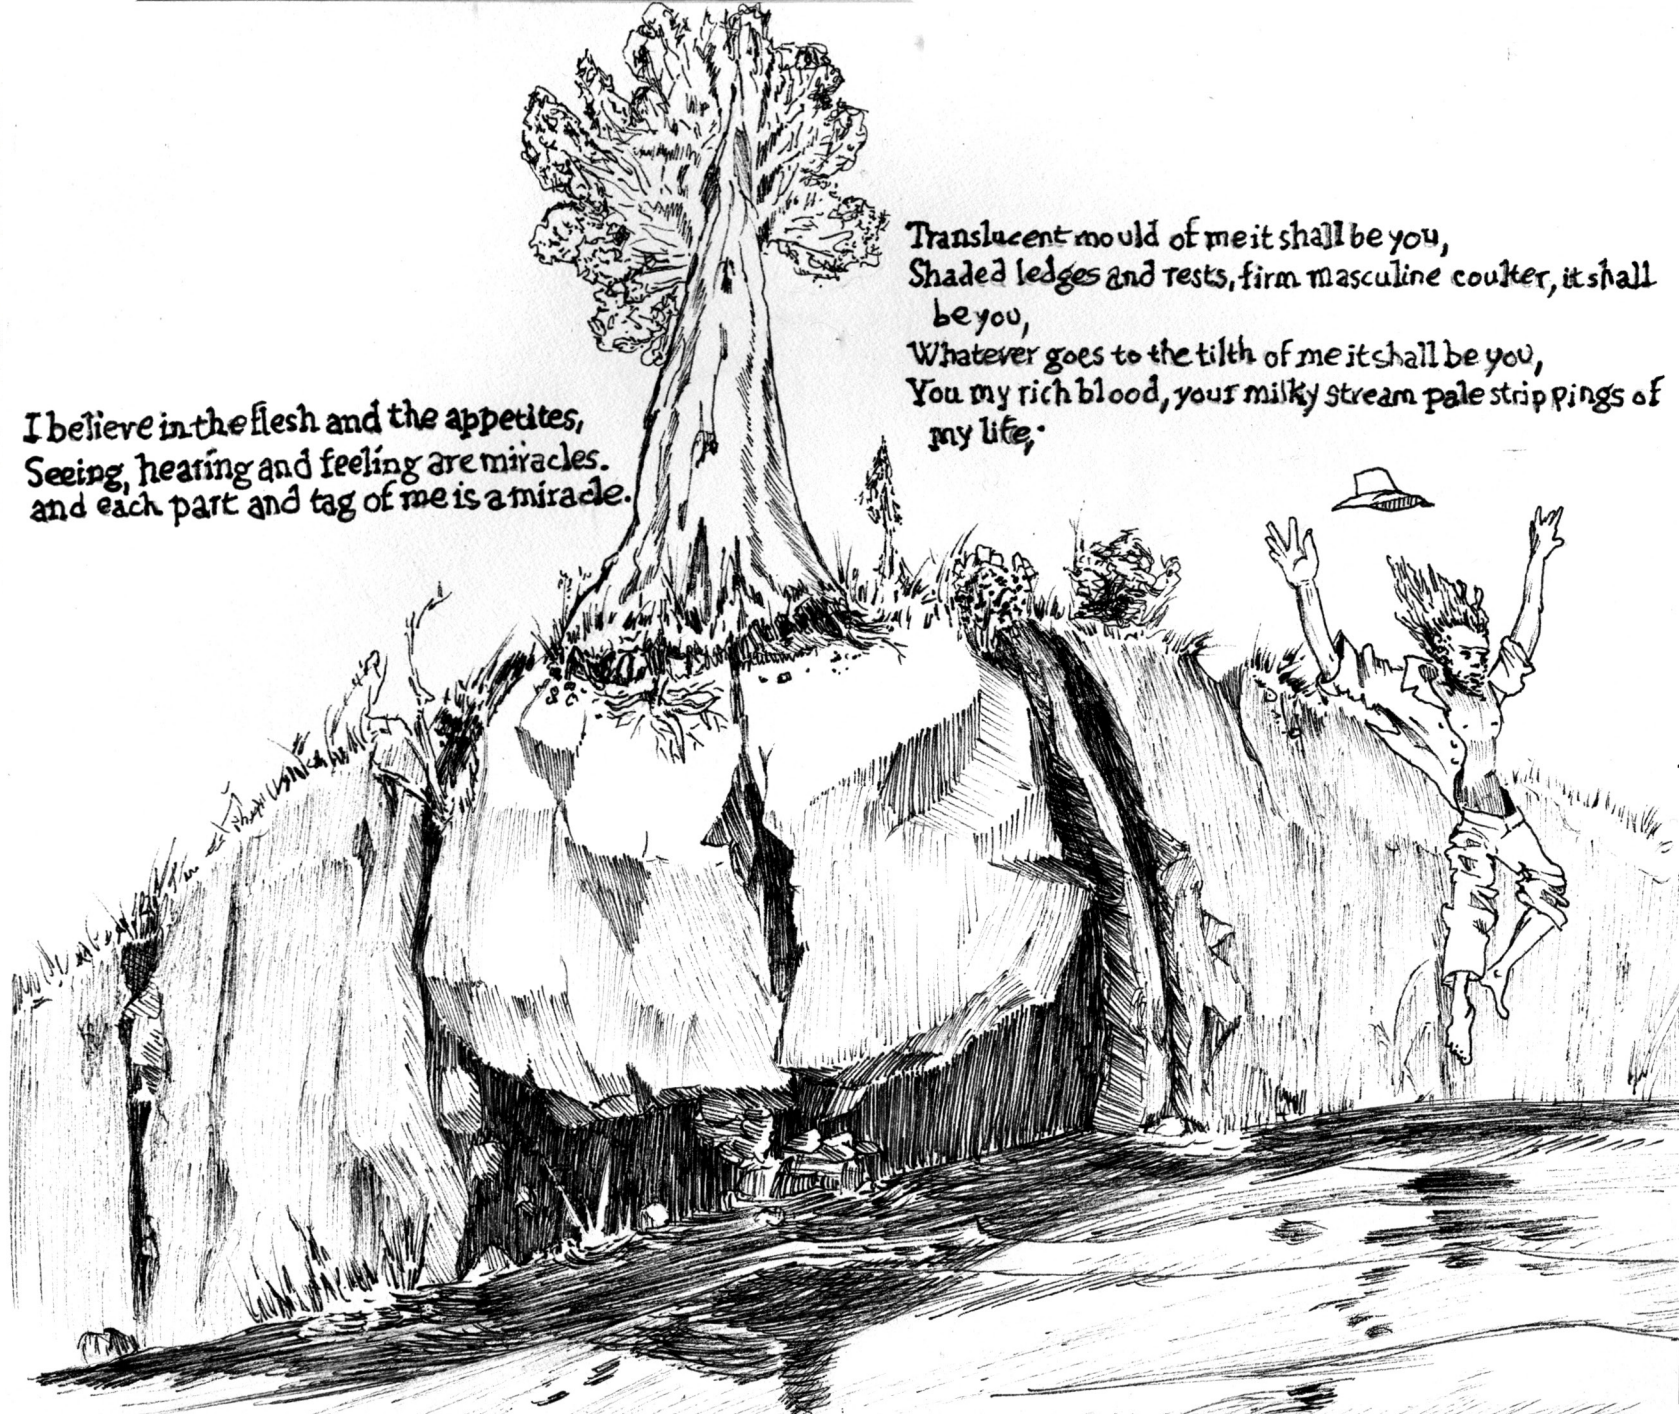 I believe in the flesh and the appetites,
Seeing, hearing and feeling are miracles.
and each part and tag of me is a miracle.
Translucent mould of me it shall be you,
Shaded ledges and rests, firm masculine coulter, it shall
be you,
Whatever goes to the tilth of me it shall be you,
You my rich blood, your milky stream pale strippings of
my life,.